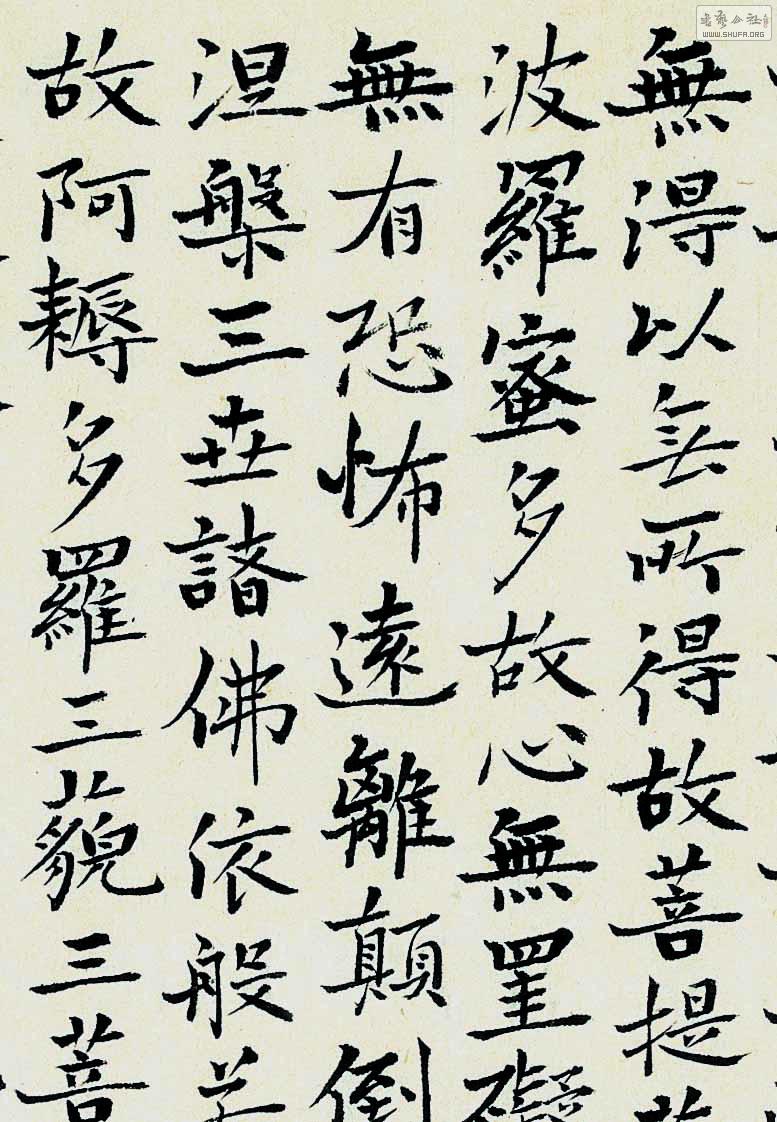 無得以無所得故菩提
波羅蜜多故心無罣礙
無有恐怖遠離顛倒
涅槃三世諸佛依般若
故阿耨多羅三藐三菩
WWW.SHUFA.ORG